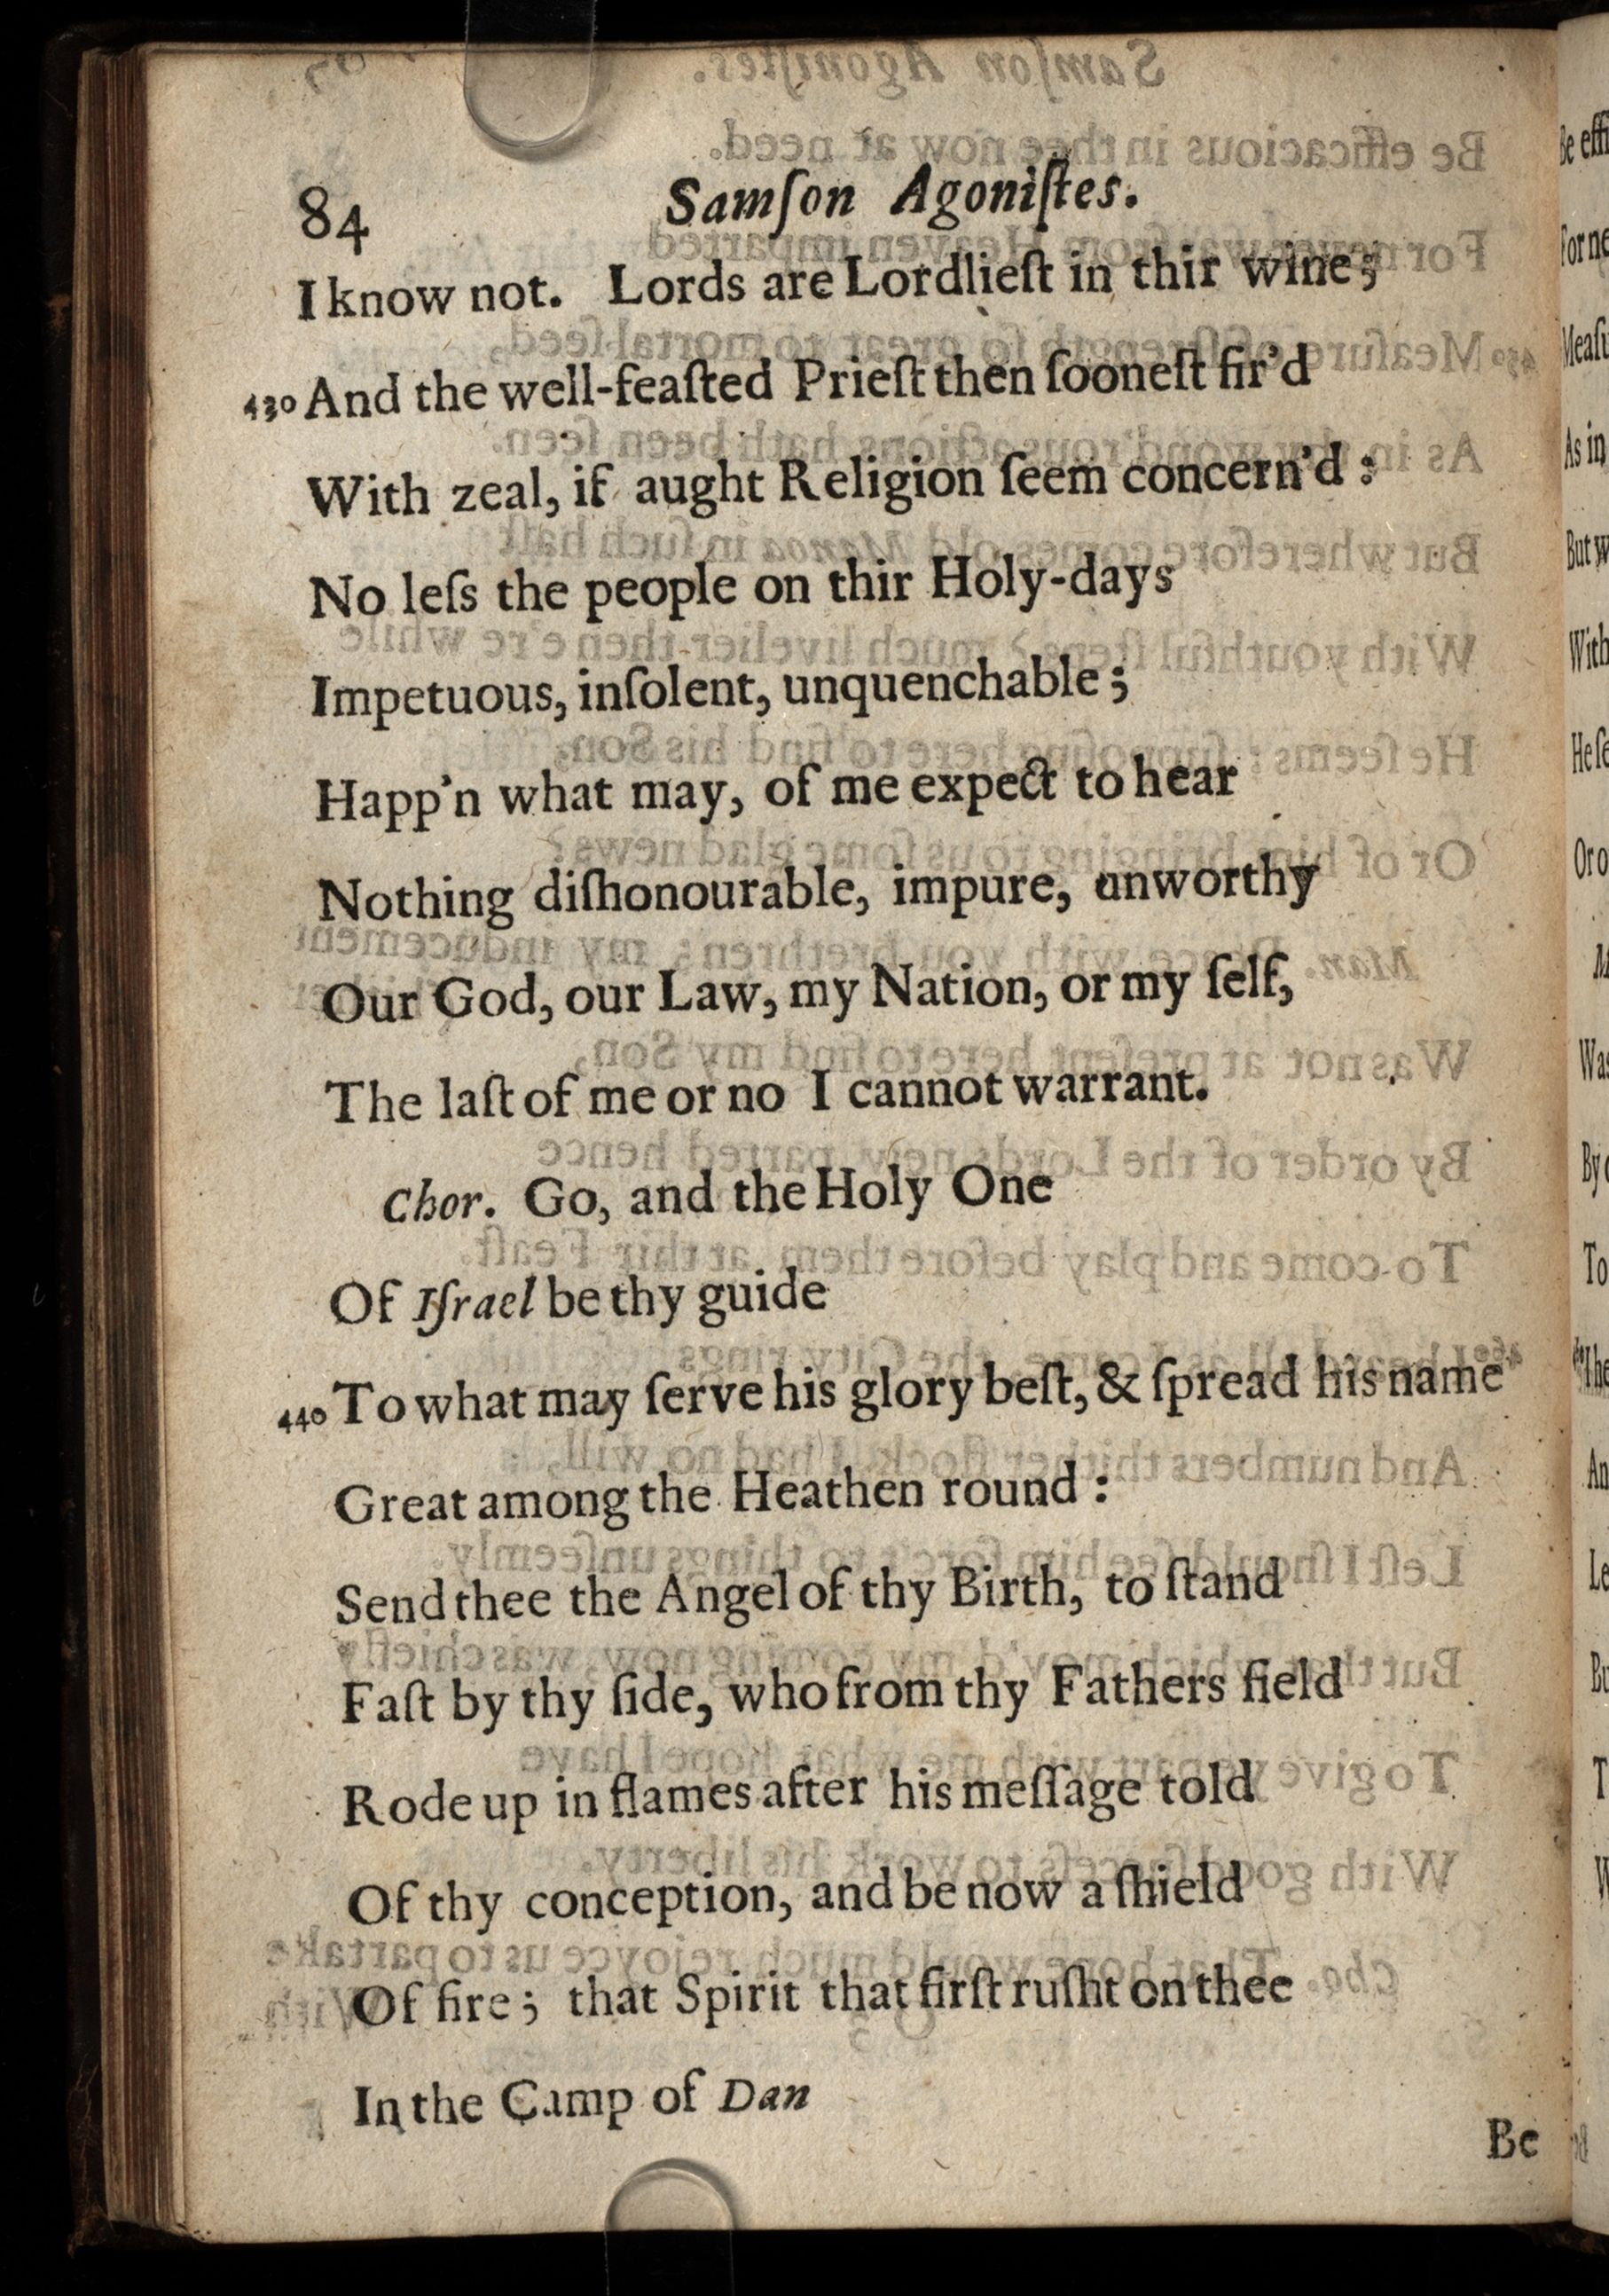 84 Samſon Agoniſtes.
I know not. Lords are Lordlieſt in thir wine;
430 And the well-feaſted Prieſt then ſooneſt fir'd
With zeal, if aught Religion ſeem concern'd:
No leſs the people on thir Holy-days
Impetuous, inſolent, unquenchable;
Happ'n what may, of me expect to hear
Nothing diſhonourable, impure, unworthy
Our God, our Law, my Nation, or my ſelf,
The laſt of me or no I cannot warrant.
Chor. Go, and the Holy One
Of Iſrael be thy guide
440 To what may ſerve his glory beſt, & ſpread his name
Great among the Heathen round:
Send thee the Angel of thy Birth, to ſtand
Faſt by thy ſide, who from thy Fathers field
Rode up in flames after his meſſage told
Of thy conception, and be now a ſhield
Of fire; that Spirit that firſt ruſht on thee
In the Camp of Dan
Be